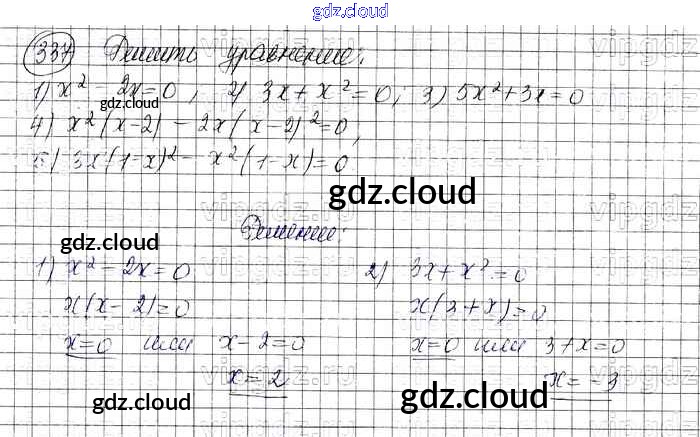 gdz.cloud
337 Решить уравнение:
1) x² - 2x = 0, 2) 3x + x² = 0; 3) 5x² + 3x = 0
gdz.cloud
4) x²(x-2) - 2x(x-2)² = 0,
5) 3x(1-x)² - x²(1-x) = 0
gdz.cloud
vipgdz.ru
Решение:
gdz.cloud
1) x² - 2x = 0 2) 3x + x² = 0
x(x-2) = 0 x(3+x) = 0
x = 0 или x - 2 = 0 x = 0 или 3 + x = 0
x = 2 x = -3
vipgdz.ru
gdz.cloud gdz.cloud